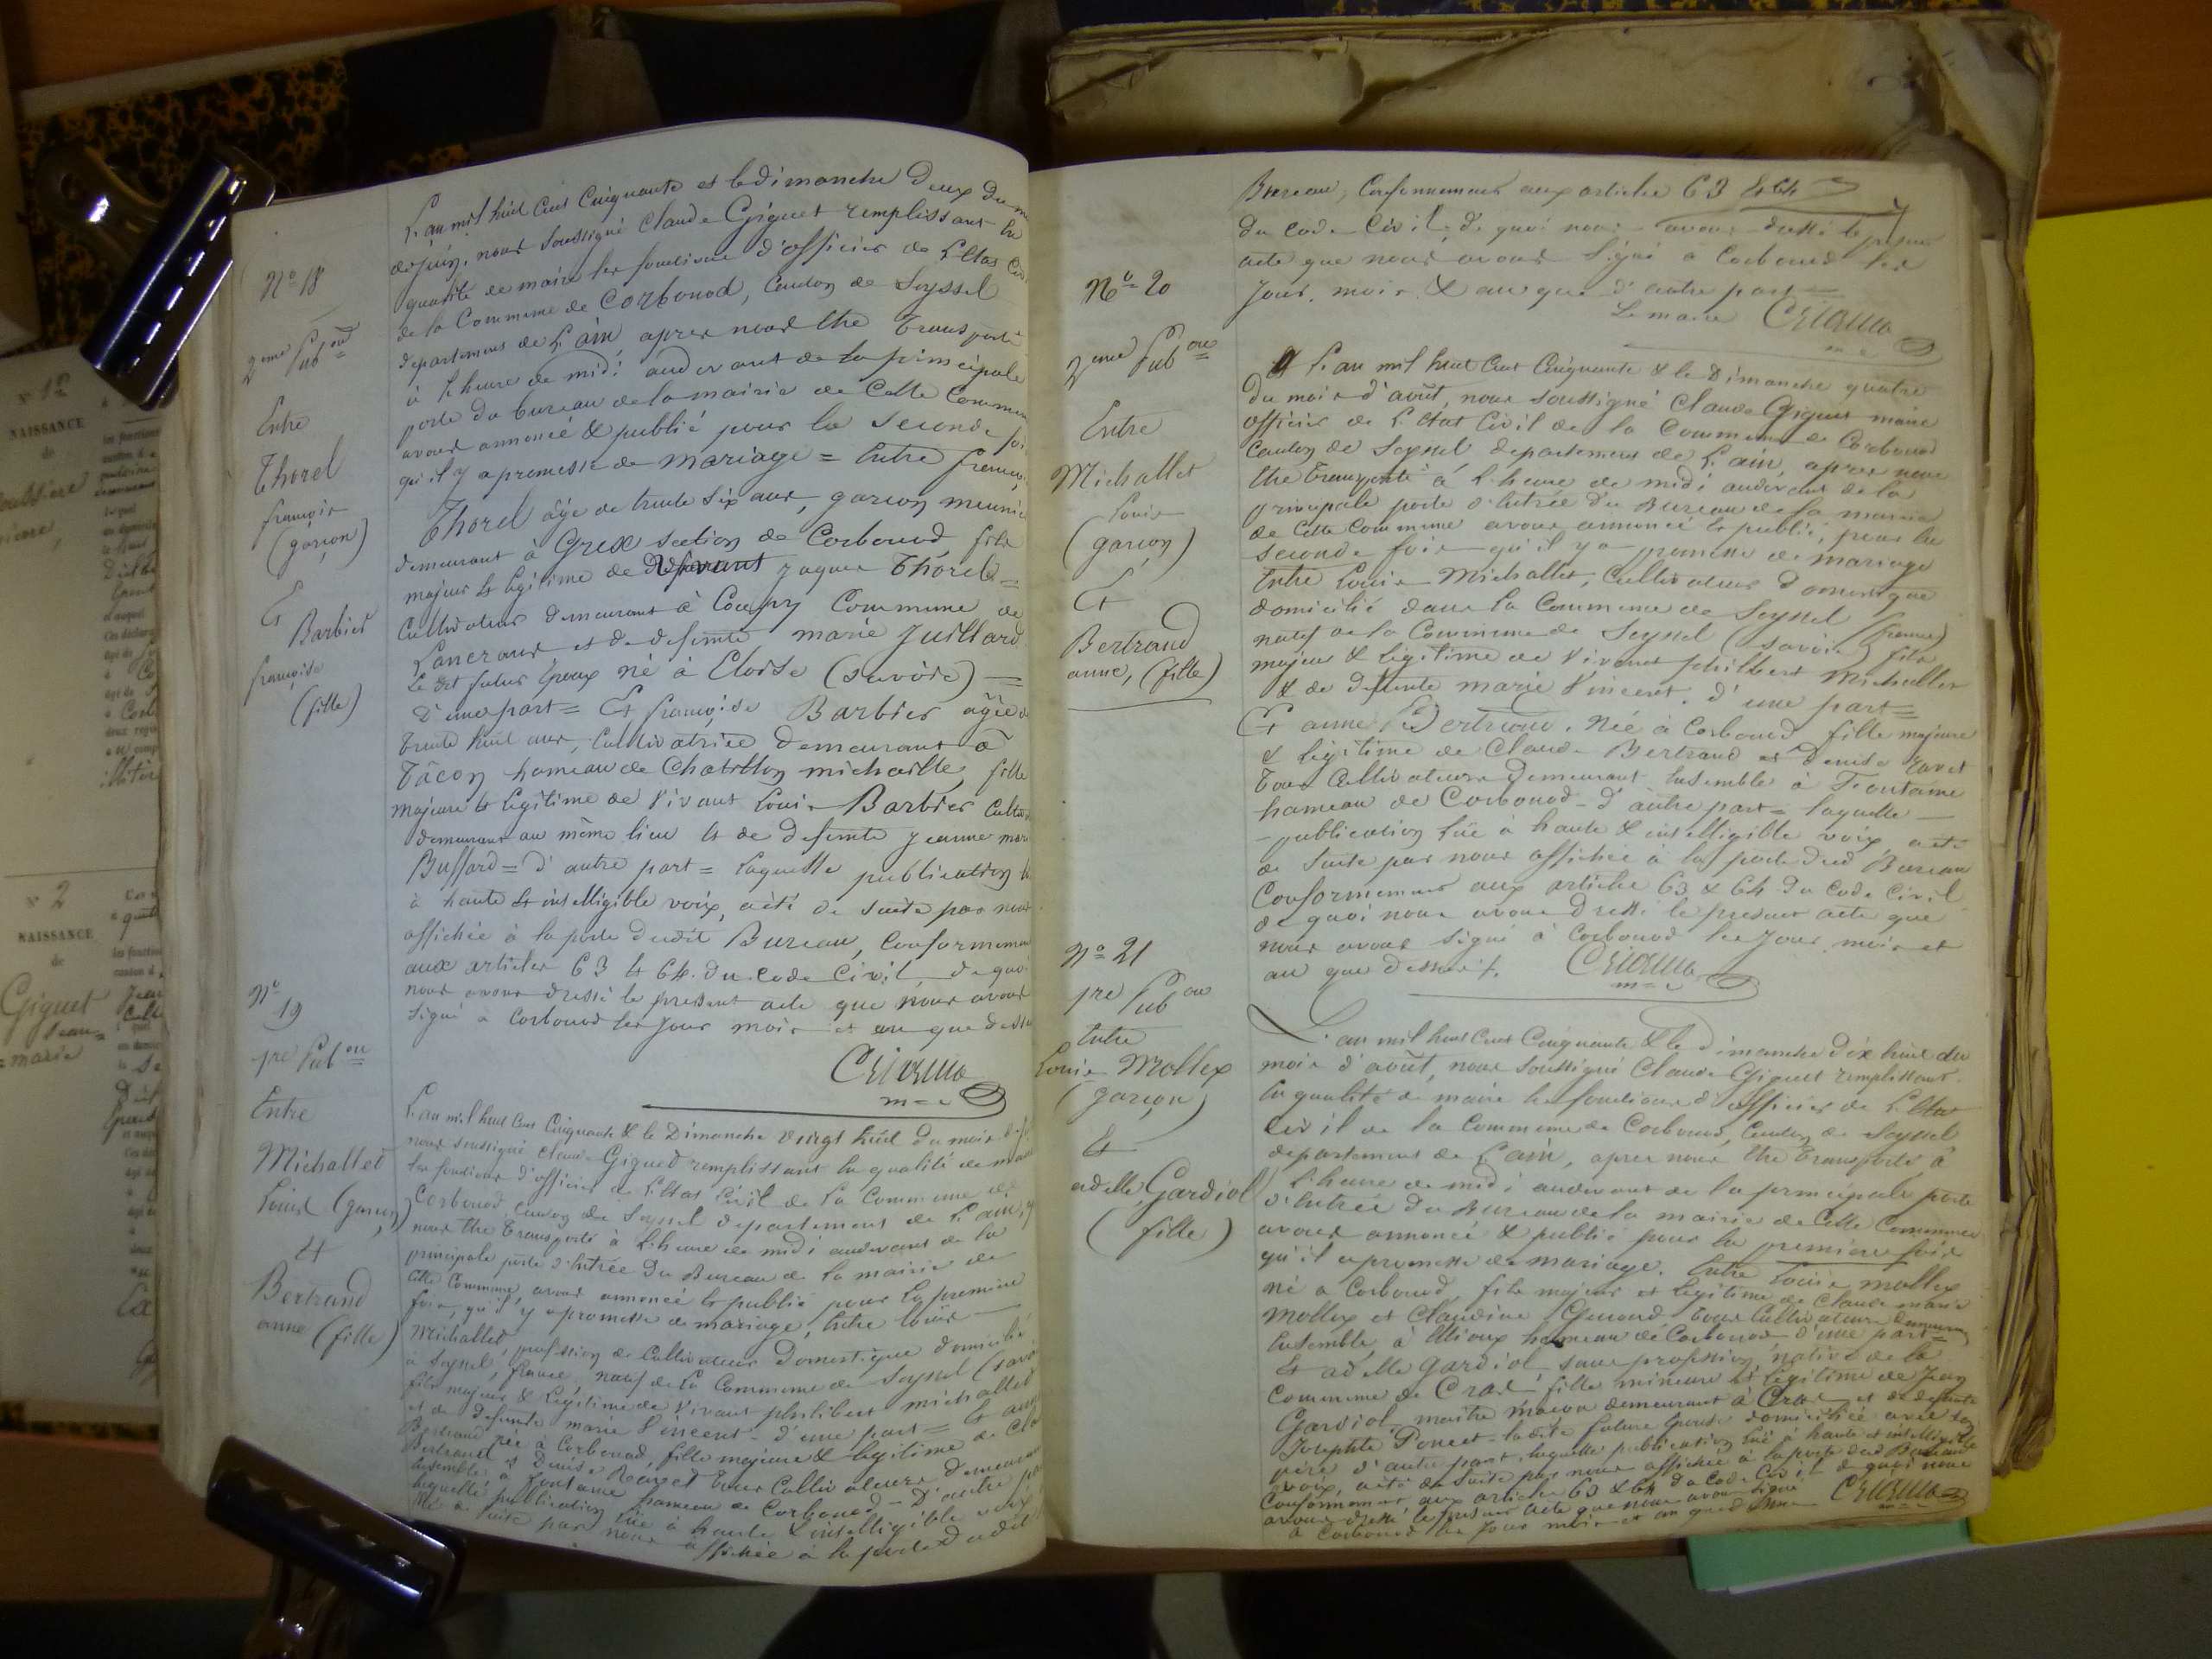 N° 18
2eme Pubon
Entre
Thorel
françois
(garçon)
Et
Barbier
françoise
(fille)
L'an mil huit Cent Cinquante et le dimanche Deux du
de juin, nous soussigné Claude Giguet remplissant la
qualité de maire les fonctions d'officier de L'Etat
de la Commune de Corbonod, Canton de Seyssel
departement de L'ain apres nous être Transporté
à L'heure de midi audevant de la principale
porte du bureau de la mairie de Cette Commune
avons annoncé & publié pour la seconde
qu'il y a promesse de mariage = Entre françois
Thorel âgé de trente Six ans, garçon meunier
demeurant à Grex section de Corbonod fils
majeur & légitime de jaques Thorel =
Cultivateur demeurant à Coupy Commune de
Lancrans et de defunte marie Juillard
le dit futur Epoux né à Eloise (savoie) =
D'une part = Et françoise Barbier agée de
trente huit ans, Cultivatrice demeurant à
Tâcon hameau de Chatillon michaille, fille
majeure & légitime de vivant Louis Barbier
demeurant au même lieu & de defunte jeanne
Buffard = d'autre part = laquelle publication
à haute & intelligible voix, a été de suite par nous
affichée à la porte dudit Bureau, Conformement
aux articles 63 & 64 du code Civil de quoi
nous avons dressé le present acte que nous avons
Signé à Corbonod les jour mois et an que dessus
N°
19
1re Pubon
Entre
Michallet
Louis (garçon)
Et
Bertrand
anne (fille)
L'an mil huit Cent Cinquante & le Dimanche vingt huit du mois
nous soussigné Claude Giguet remplissant la qualité de maire
les fonctions d'officier de L'Etat Civil de la Commune de
Corbonod, canton de Seyssel departement de L'ain,
nous être Transporté à L'heure de midi audevant de la
principale porte d'entrée du Bureau de la mairie de
Cette Commune, avons annoncé & publié pour la premiere
fois, qu'il y a promesse de mariage, Entre Louis
Michallet, profession de Cultivateur Domestique domicilié
à Seyssel, france, natif de la Commune de Seyssel (savoie)
fils majeur & légitime de vivant philibert michallet
et de defunte marie Vincent - d'une part = Et anne
Bertrand née à Corbonod, fille majeure & legitime de
Bertrand et Denise Ravet tous Cultivateurs demeurant
Ensemble à fontaine hameau de Corbonod - D'autre part
laquelle publication lüe à haute & intelligible voix
de suite par nous affichée à la porte dudit
Bureau, Conformement aux articles 63 & 64
du code Civil, de quoi nous avons dressé le present
acte que nous avons Signé à Corbonod les
jour, mois & an que d'autre part
Le maire
N° 20
2eme Pubon
Entre
Michallet
Louis
(garçon)
Et
Bertrand
anne, (fille)
L'an mil huit Cent Cinquante & le Dimanche quatre
du mois d'août, nous soussigné Claude Giguet maire
officier de L'Etat Civil de la Commune de Corbonod
Canton de Seyssel departement de L'ain, apres nous
être transporté à L'heure de midi audevant de la
principale porte d'entrée du Bureau de la mairie
de Cette Commune avons annoncé & publié, pour la
seconde fois qu'il y a promesse de mariage
Entre Louis Michallet, Cultivateur Domestique
domicilié dans la Commune de Seyssel (france)
natif de la Commune de Seyssel (savoie) fils
majeur & légitime de vivant philibert Michallet
& de defunte marie Vincent, d'une part =
Et anne Bertrand, Née à Corbonod fille majeure
& légitime de Claude Bertrand et Denise Ravet
tous Cultivateurs Demeurant Ensemble à Fontaine
hameau de Corbonod - d'autre part = laquelle
publication lüe à haute & intelligible voix, a été
de suite par nous affichée à la porte dud Bureau
Conformement aux articles 63 & 64 du Code Civil
de quoi nous avons dressé le present acte que
nous avons signé à Corbonod les jour mois et
an que dessus
N° 21
1re Pubon
Entre
Louis Mollex
(garçon)
Et
adelle Gardiol
(fille)
L'an mil huit Cent Cinquante & le Dimanche dix huit du
mois d'août, nous soussigné Claude Giguet remplissant
la qualité de maire les fonctions d'officier de L'Etat
Civil de la Commune de Corbonod, Canton de Seyssel
departement de L'ain, apres nous être Transporté à
L'heure de midi audevant de la principale porte
d'Entrée du Bureau de la mairie de Cette Commune
avons annoncé & publié pour la premiere fois
qu'il a promesse de mariage. Entre Louis mollex
né a Corbonod, fils majeur et légitime de Claude marie
Mollex et Claudine Genoud tous Cultivateurs demeurant
Ensemble, à hameau de Corbonod - d'une part =
Et adelle Gardiol, sans profession, native de la
Commune de Craz, fille mineure et legitime de Jean
Gardiol maitre maçon demeurant à Craz et de defunte
Josephte Poncet - ladite future Epouse domiciliée avec son
père d'autre part, laquelle publication lüe à haute et intelligible
voix, a été de suite par nous affichée à la porte dud Bureau
Conformement aux articles 63 & 64 du Code Civil de quoi nous
avons dressé le present acte que nous avons signé
à Corbonod les jour mois et an que dessus
N° 2
NAISSANCE
de
Giguet
Jean=
=marie
NAISSANCE
de